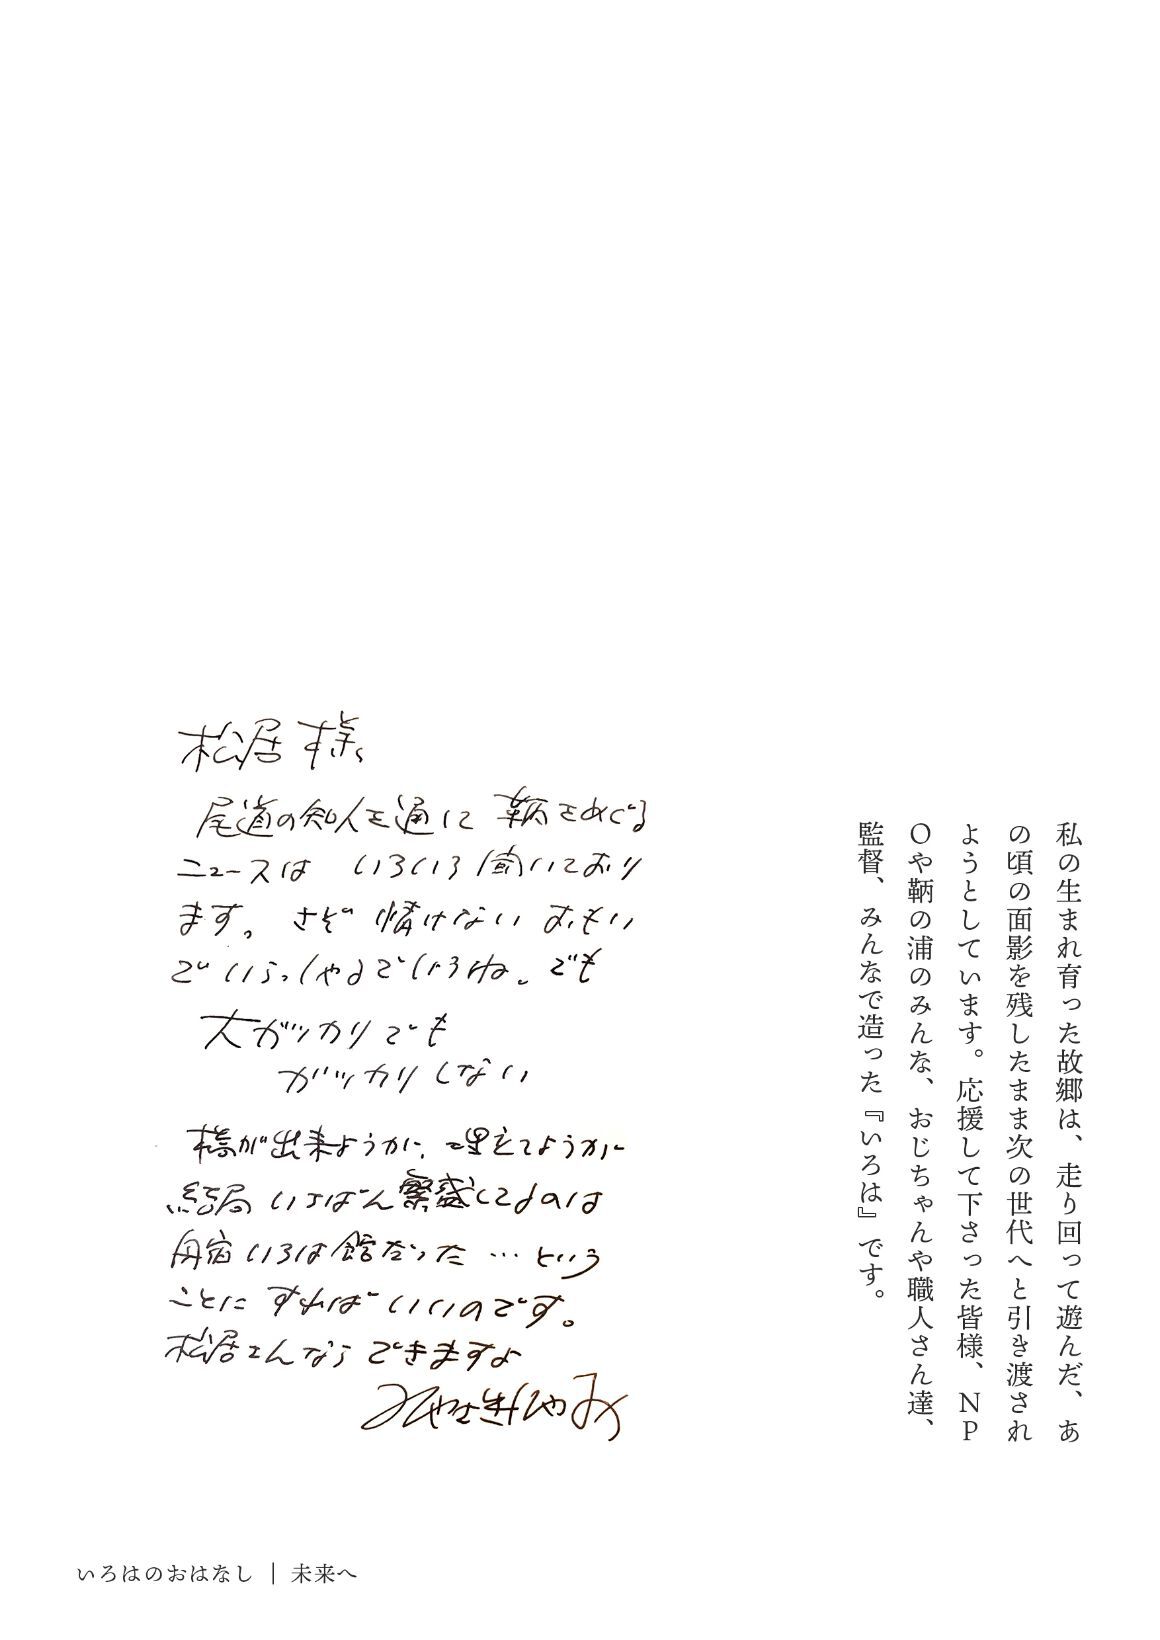 私の生まれ育った故郷は、走り回って遊んだ、あ
の頃の面影を残したまま次の世代へと引き渡され
ようとしています。応援して下さった皆様、ＮＰ
Ｏや鞆の浦のみんな、おじちゃんや職人さん達、
監督、みんなで造った『いろは』です。
松居様
尾道の知人を通して鞆をめぐる
ニュースは いろいろ聞いており
ます。さぞ 情けない おもい
でいらっしゃるでしょうね。でも
大ガッカリでも
ガッカリしない
橋が出来ようが、埋立てようが
結局 いちばん繁盛してるのは
舟宿いろは館だった…という
ことに すればいいのです。
松居さんなら できますよ
みやざきはやお
いろはのおはなし ｜ 未来へ